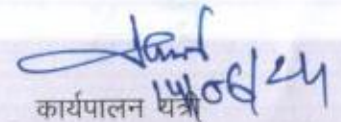 14/06/24
कार्यपालन यंत्री